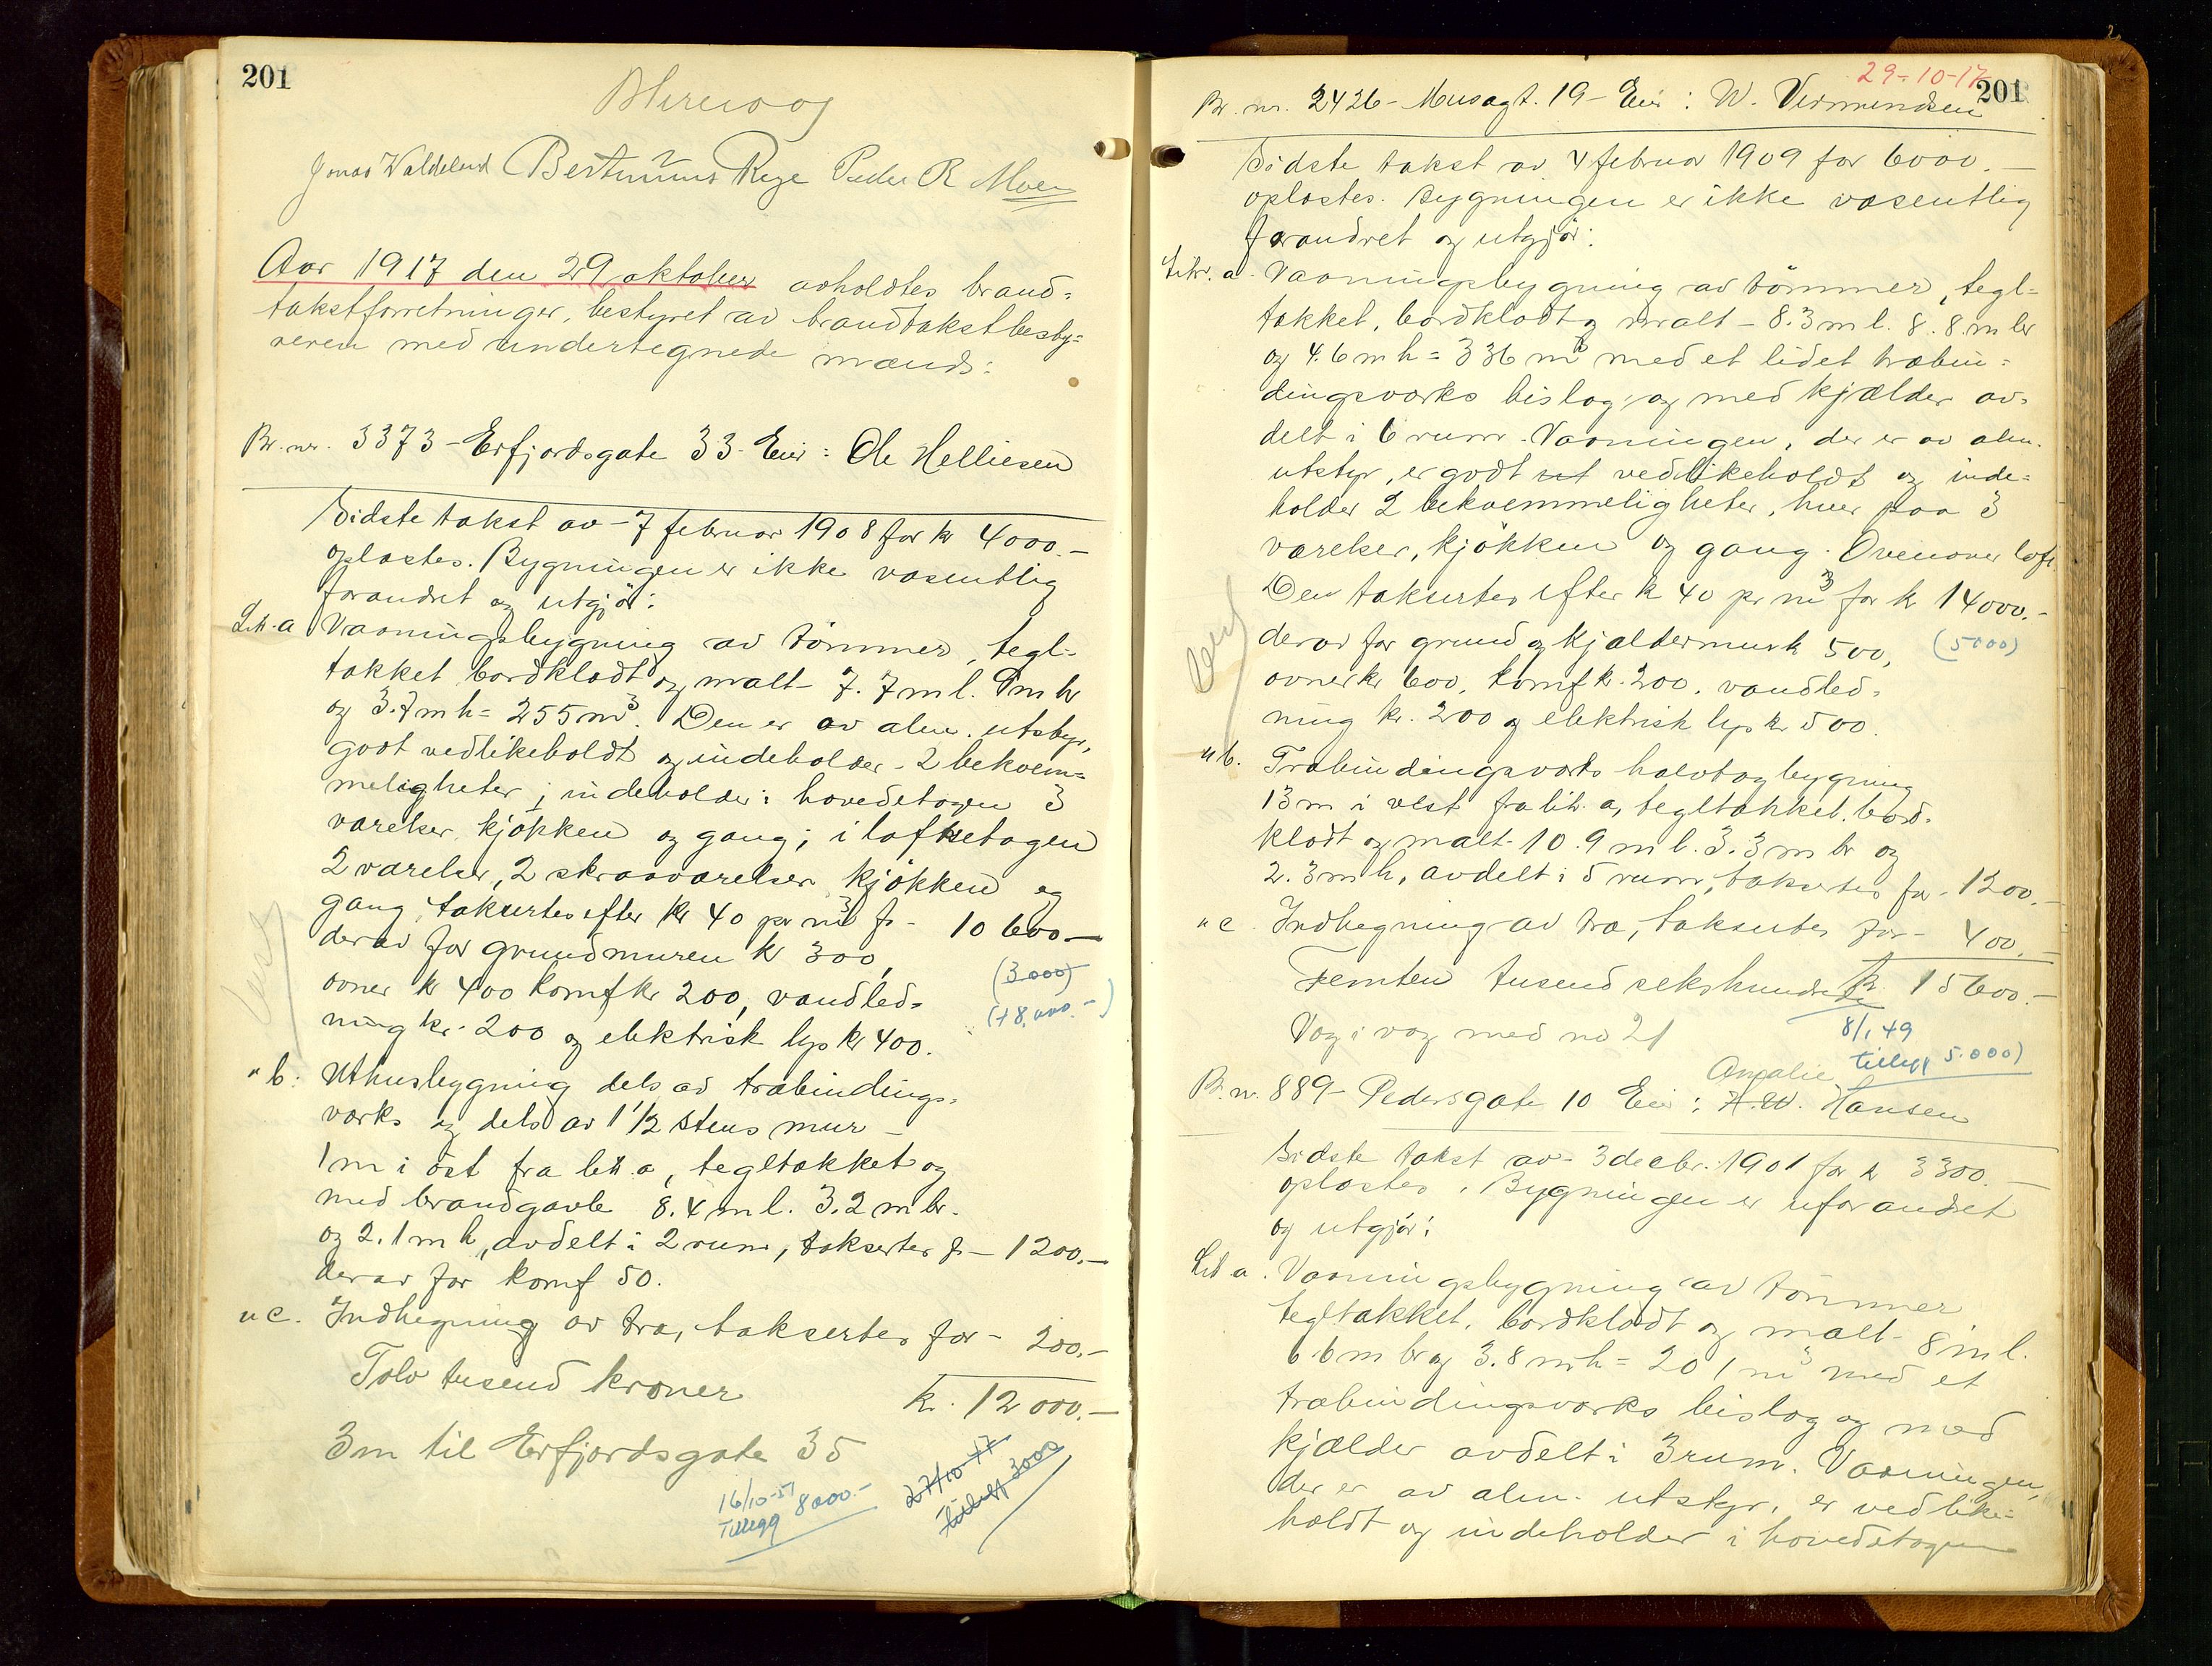 201
Jonas Waldeland Bertinius Rege Peder R Moen
Aar 1917 den 29 oktober avholdtes brand=
takstforretninger, bestyret av brandtakstbesty=
reren med undertegnede mænd:
Br. nr. 3373 - Erfjordsgate 33. Eier: Ole Helliesen
Sidste takst av - 7 februar 1908 for kr 4000.-
oplæstes. Bygningen er ikke væsentlig
forandret og utgjør:
Lit. a Vaaningsbygning av tømmer, tegl-
tækket, bordklædt og malt - 7.7 m l. 9 m br
og 3.7 m h = 255 m³. Den er av alm. utstyr,
godt vedlikeholdt og indeholder - 2 bekvem=
meligheter; indeholder i hovedetagen 3
værelser, kjøkken og gang; i loftsetagen
2 værelser, 2 skraaværelser, kjøkken og
gang, takseres efter kr 40 pr m³ for - 10 600.-
derav for grundmuren kr 300,
(3000)
ovner kr 400 komf kr 200, vandled=
(+8,000.-)
ning kr. 200 og elektrisk lys kr 400.
" b: Uthusbygning dels av træbindings=
værks og dels av 1 1/2 stens mur -
1 m i øst fra litr. a, tegltækket og
med brandgavle 8.4 m l. 3.2 m br.
og 2.1 m h, avdelt i 2 rum, takseres for - 1200.-
derav for komf 50.
" c. Indhegning av træ, takseres for - 200.-
Tolv tusend kroner kr. 12 000.-
3m til Erfjordsgate 35
16/10-51
Tillegg 8000.-
27/10-47
tillegg 3000
29-10-17
201
Br. nr. 2426 - Musagt. 19 - Eier: W. Vermundsen
Sidste takst av 4 februar 1909 for 6000.-
oplæstes. Bygningen er ikke væsentlig
forandret og utgjør:
Litr. a. Vaaningsbygning av tømmer, tegl-
tækket, bordklædt og malt - 8.3 m l. 8.8 m br
og 4.6 m h = 336 m³ med et lidet træbin=
dingsværks bislag og med kjælder av=
delt i 6 rum. Vaaningen, der er av alm.
utstyr, er godt ut vedlikeholdt og inde=
holder 2 bekvemmeligheter, hver paa 3
værelser, kjøkken og gang. Ovenover loft
Den takseres efter kr 40 pr m³ for kr 14000.-
derav for grund og kjældermur kr 500, (5000)
ovner kr 600, komf kr. 200, vandled=
ning kr. 200 og elektrisk lys kr 500.
" b. Træbindingsværks halvtagbygning
13 m i vest fra litr. a, tegltækket, bord-
klædt og malt - 10.9 m l. 3.3 m br og
2.3 m h, avdelt i 5 rum, takseres for - 1200.-
" c. Indhegning av træ, takseres for - 400.-
Femten tusend sekshundrede kr 15600.-
Væg i væg med no 21
8/1 49
tillegg 5.000)
Amalie
Br. nr. 889 - Pedersgate 10 Eier: H. W. Hansen
Sidste takst av - 3 decbr. 1901 for kr 3300.-
oplæstes. Bygningen er uforandret
og utgjør:
Lit a. Vaaningsbygning av tømmer
tegltækket, bordklædt og malt - 8 m l.
6.6 m br og 3.8 m h = 201 m³ med et
træbindingsværks bislag og med
kjælder avdelt i 3 rum. Vaaningen,
der er av alm. utstyr, er vedlike=
holdt og indeholder i hovedetagen